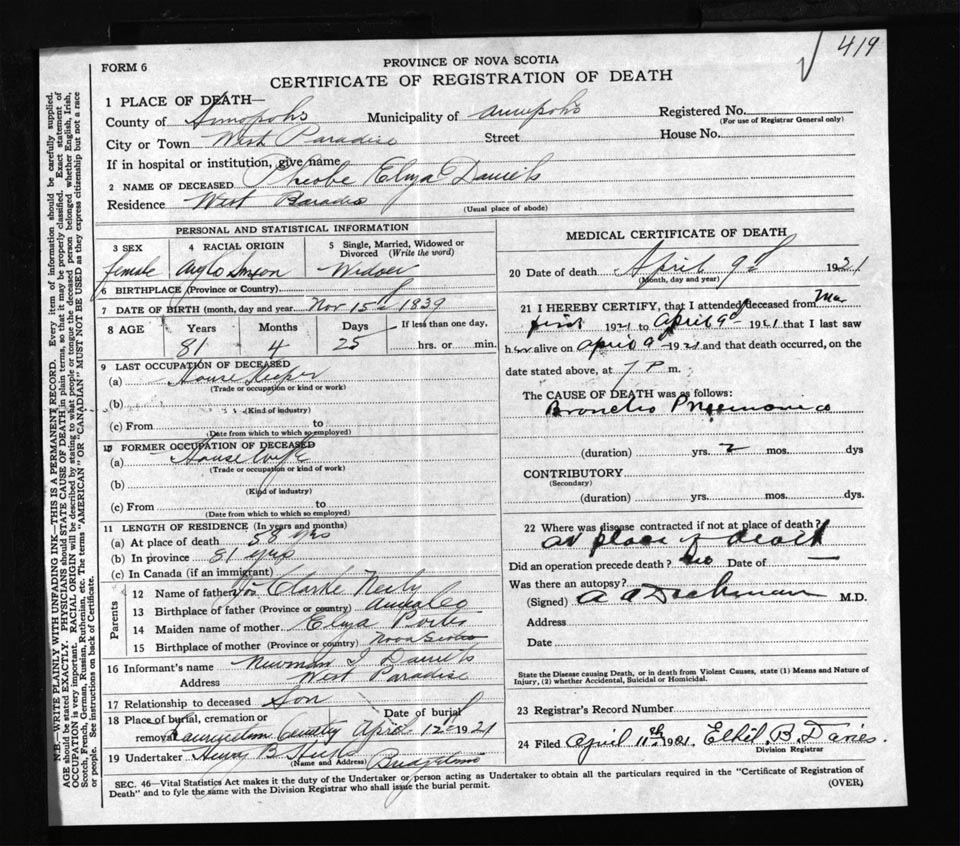 419
FORM 6
PROVINCE OF NOVA SCOTIA
CERTIFICATE OF REGISTRATION OF DEATH
1 PLACE OF DEATH—
County of Annapolis Municipality of Annapolis Registered No.
(For use of Registrar General only)
City or Town West Paradise Street House No.
If in hospital or institution, give name
2 NAME OF DECEASED Phoebe Eliza Daniels
Residence West Paradise
(Usual place of abode)
PERSONAL AND STATISTICAL INFORMATION
3 SEX 4 RACIAL ORIGIN 5 Single, Married, Widowed or Divorced (Write the word)
female Anglo Saxon Widow
6 BIRTHPLACE (Province or Country)
7 DATE OF BIRTH (month, day and year Nov 15th 1839
8 AGE Years Months Days If less than one day,
81 4 25 hrs. or min.
9 LAST OCCUPATION OF DECEASED
(a) House Keeper
(Trade or occupation or kind or work)
(b)
(Kind of industry)
(c) From to
(Date from which to which so employed)
10 FORMER OCCUPATION OF DECEASED
(a) House Wife
(Trade or occupation or kind of work)
(b)
(Kind of industry)
(c) From to
(Date from which to which so employed)
11 LENGTH OF RESIDENCE (In years and months)
(a) At place of death 58 yrs
(b) In province 81 yrs
(c) In Canada (if an immigrant)
Parents
12 Name of father Clarke Neily
13 Birthplace of father (Province or country) Anna Co
14 Maiden name of mother Eliza
15 Birthplace of mother (Province or country) Nova Scotia
16 Informant's name Newman I Daniels
Address West Paradise
17 Relationship to deceased Son
18 Place of burial, cremation or removal Date of burial
Lawrencetown April 12th 1921
19 Undertaker Henry B Hicks
(Name and Address) Bridgetown
MEDICAL CERTIFICATE OF DEATH
20 Date of death April 9th 1921
(Month, day and year)
21 I HEREBY CERTIFY, that I attended deceased from Mar
first 1921 to April 9th 1921 that I last saw
her alive on April 9th 1921 and that death occurred, on the
date stated above, at 7 P m.
The CAUSE OF DEATH was as follows:
Broncho Pneumonia
(duration) yrs. 2 mos. dys
CONTRIBUTORY
(Secondary)
(duration) yrs. mos. dys.
22 Where was disease contracted if not at place of death?
at place of death
Did an operation precede death? no Date of
Was there an autopsy?
(Signed) A A Dechman M.D.
Address
Date
State the Disease causing Death, or in death from Violent Causes, state (1) Means and Nature of
Injury, (2) whether Accidental, Suicidal or Homicidal.
23 Registrar's Record Number
24 Filed April 11th 1921 Ethel B. Davies.
Division Registrar
SEC. 46—Vital Statistics Act makes it the duty of the Undertaker or person acting as Undertaker to obtain all the particulars required in the "Certificate of Registration of
Death" and to fyle the same with the Division Registrar who shall issue the burial permit.
(OVER)
N.B.—WRITE PLAINLY WITH UNFADING INK—THIS IS A PERMANENT RECORD. Every item of information should be carefully supplied.
AGE should be stated EXACTLY. PHYSICIANS should STATE CAUSE OF DEATH in plain terms, so that it may be properly classified. Exact statement of
OCCUPATION is very important. RACIAL ORIGIN will be described by stating to what people or tongue the deceased person belonged whether English, Irish,
Scotch, French, German, Russian, Ruthenian, etc. The terms "AMERICAN" OR "CANADIAN" MUST NOT BE USED as they express citizenship but not a race
or people. See instructions on back of Certificate.